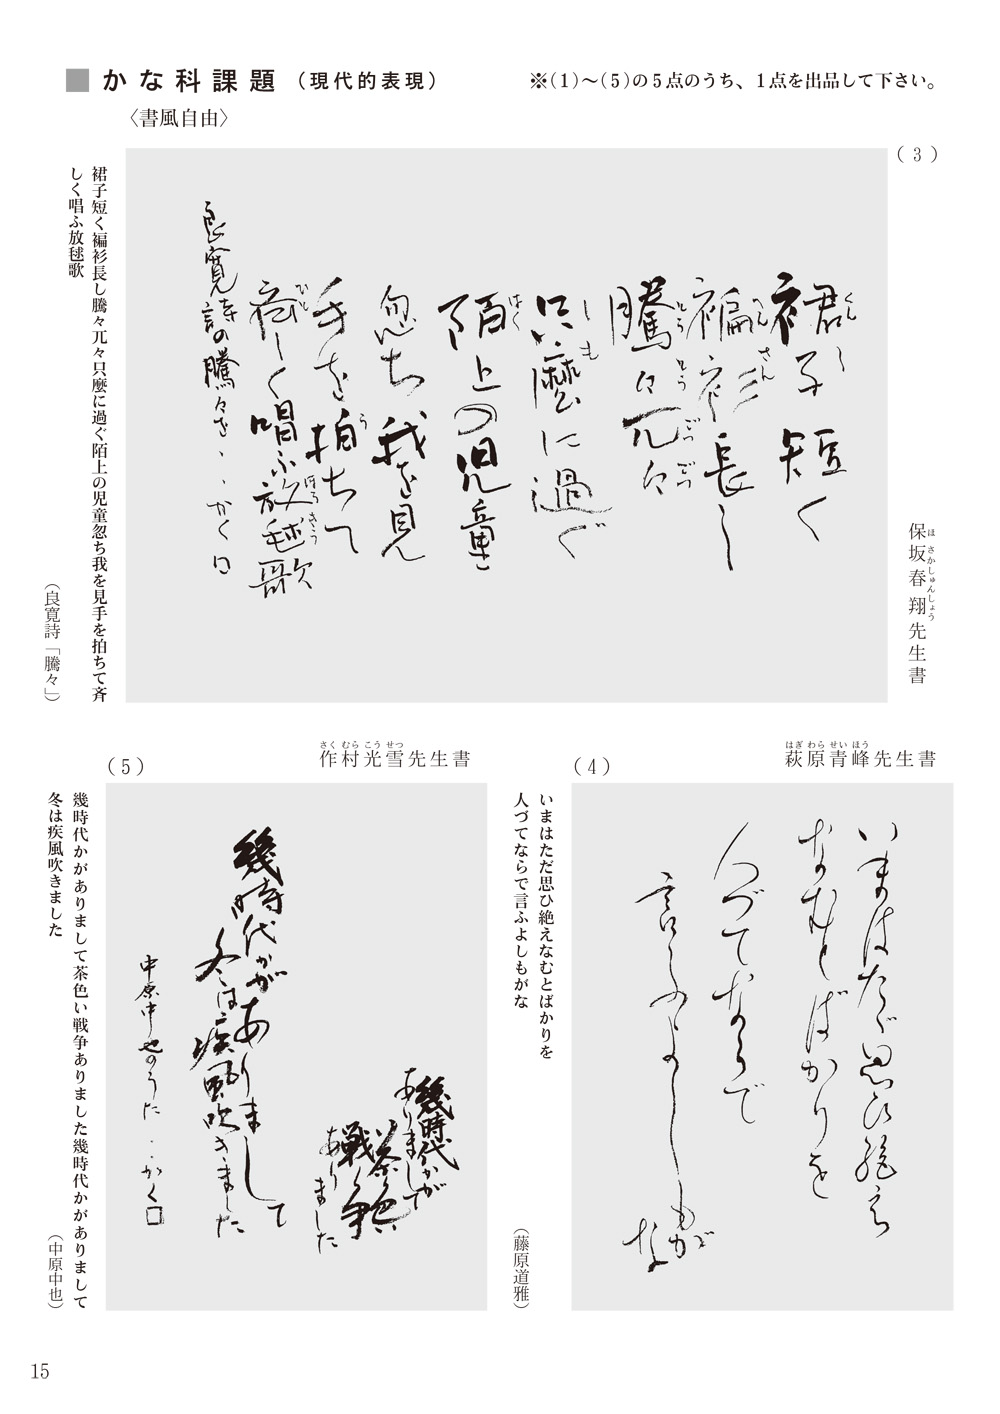 ■かな科課題（現代的表現）
※(1)～(5)の5点のうち、1点を出品して下さい。
〈書風自由〉
(3)
保坂春翔先生書
ほさかしゅんしょう
裙子短く
くんし
褊衫長し
へんさん
騰々兀々
とうとうごつごつ
只麼に過ぐ
しも
陌上の児童
はく
忽ち我を見
手を拍ちて
う
斉しく唱ふ放毬歌
ひと
ほうきう
良寛詩の騰々を・・かく□
裙子短く褊衫長し騰々兀々只麼に過ぐ陌上の児童忽ち我を見手を拍ちて斉
しく唱ふ放毬歌
（良寛詩「騰々」）
(4)
萩原青峰先生書
はぎわらせいほう
いまはたゞ思ひ絶え
なむとばかりを
人づてならで
言ふのよしもが
な
いまはただ思ひ絶えなむとばかりを
人づてならで言ふよしもがな
（藤原道雅）
(5)
作村光雪先生書
さくむらこうせつ
幾時代かが
ありまして
茶色い
戦争
ありました
幾時代かがありまして
冬は疾風吹きました
中原中也のうた・・かく□
幾時代かがありまして茶色い戦争ありました幾時代かがありまして
冬は疾風吹きました
（中原中也）
15